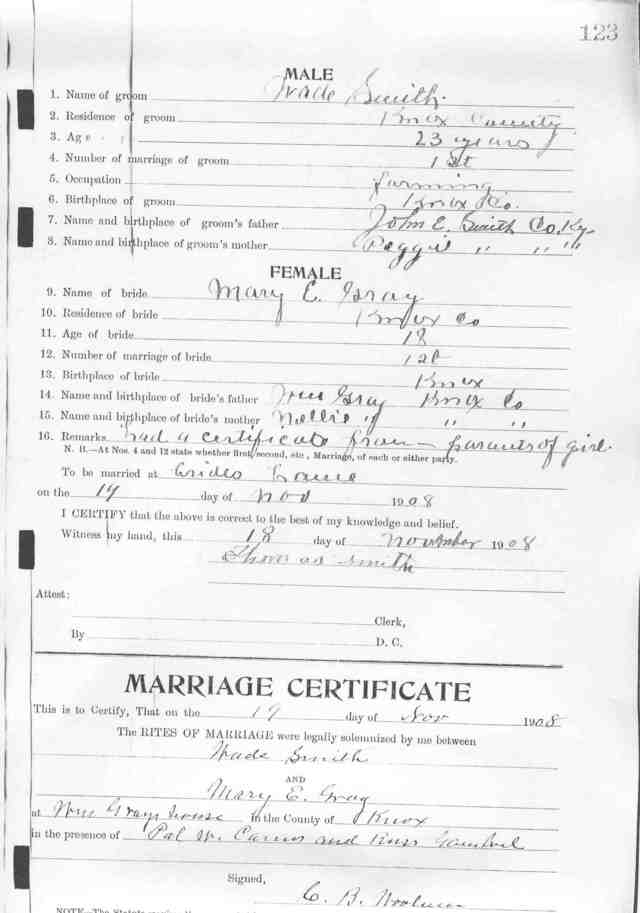 123
MALE
1. Name of groom Wade Smith
2. Residence of groom Knox County
3. Age 23 years
4. Number of marriage of groom 1st
5. Occupation farming
6. Birthplace of groom Knox Co.
7. Name and birthplace of groom's father John E. Smith Co. Ky
8. Name and birthplace of groom's mother Peggie " " "
FEMALE
9. Name of bride Mary E. Gray
10. Residence of bride Knox Co
11. Age of bride 18
12. Number of marriage of bride 1st
13. Birthplace of bride Knox
14. Name and birthplace of bride's father Wm Gray Knox Co
15. Name and birthplace of bride's mother Nellie " " "
16. Remarks had a certificate from parants of girl
N. B.—At Nos. 4 and 12 state whether first, second, etc., Marriage, of each or either party.
To be married at
on the 19 day of Nov 1908
I CERTIFY that the above is correct to the best of my knowledge and belief.
Witness my hand, this 18 day of November 1908
Thomas Smith
Attest:
Clerk,
By D. C.
MARRIAGE CERTIFICATE
This is to Certify, That on the 19 day of Nov 1908
The RITES OF MARRIAGE were legally solemnized by me between
Wade Smith
AND
Mary E. Gray
at Wm Grays house in the County of Knox
in the presence of Pal W. and
Signed,
C. B.
NOTE—The Statute